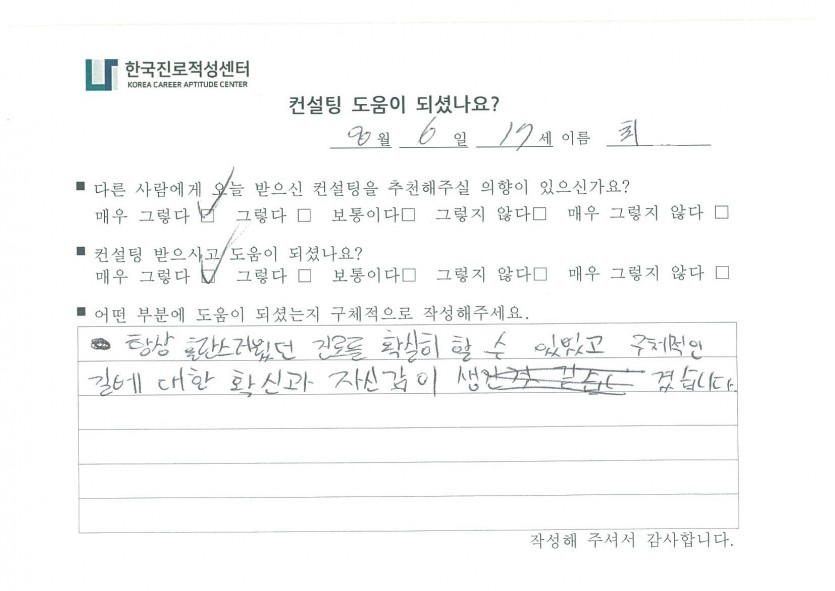 한국진로적성센터
KOREA CAREER APTITUDE CENTER
컨설팅 도움이 되셨나요?
8월 6일 17세 이름 최
■ 다른 사람에게 오늘 받으신 컨설팅을 추천해주실 의향이 있으신가요?
매우 그렇다 ☑ 그렇다 □ 보통이다□ 그렇지 않다□ 매우 그렇지 않다 □
■ 컨설팅 받으시고 도움이 되셨나요?
매우 그렇다 ☑ 그렇다 □ 보통이다□ 그렇지 않다□ 매우 그렇지 않다 □
■ 어떤 부분에 도움이 되셨는지 구체적으로 작성해주세요.
항상 혼란스러웠던 진로를 확실히 할 수 있었고 구체적인
길에 대한 확신과 자신감이 생 겼습니다.
작성해 주셔서 감사합니다.